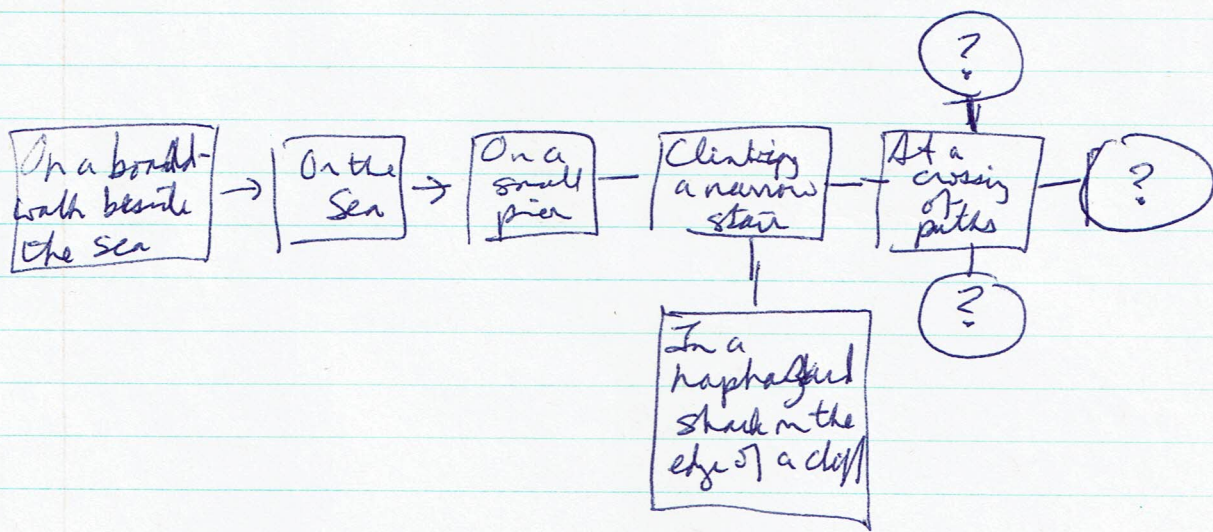 ?
On a boardd-
walk beside
the sea
On the
Sea
On a
small
pier
Climbing
a narrow
stair
At a
crossing
of
paths
?
?
In a
haphazard
shack on the
edge of a cliff